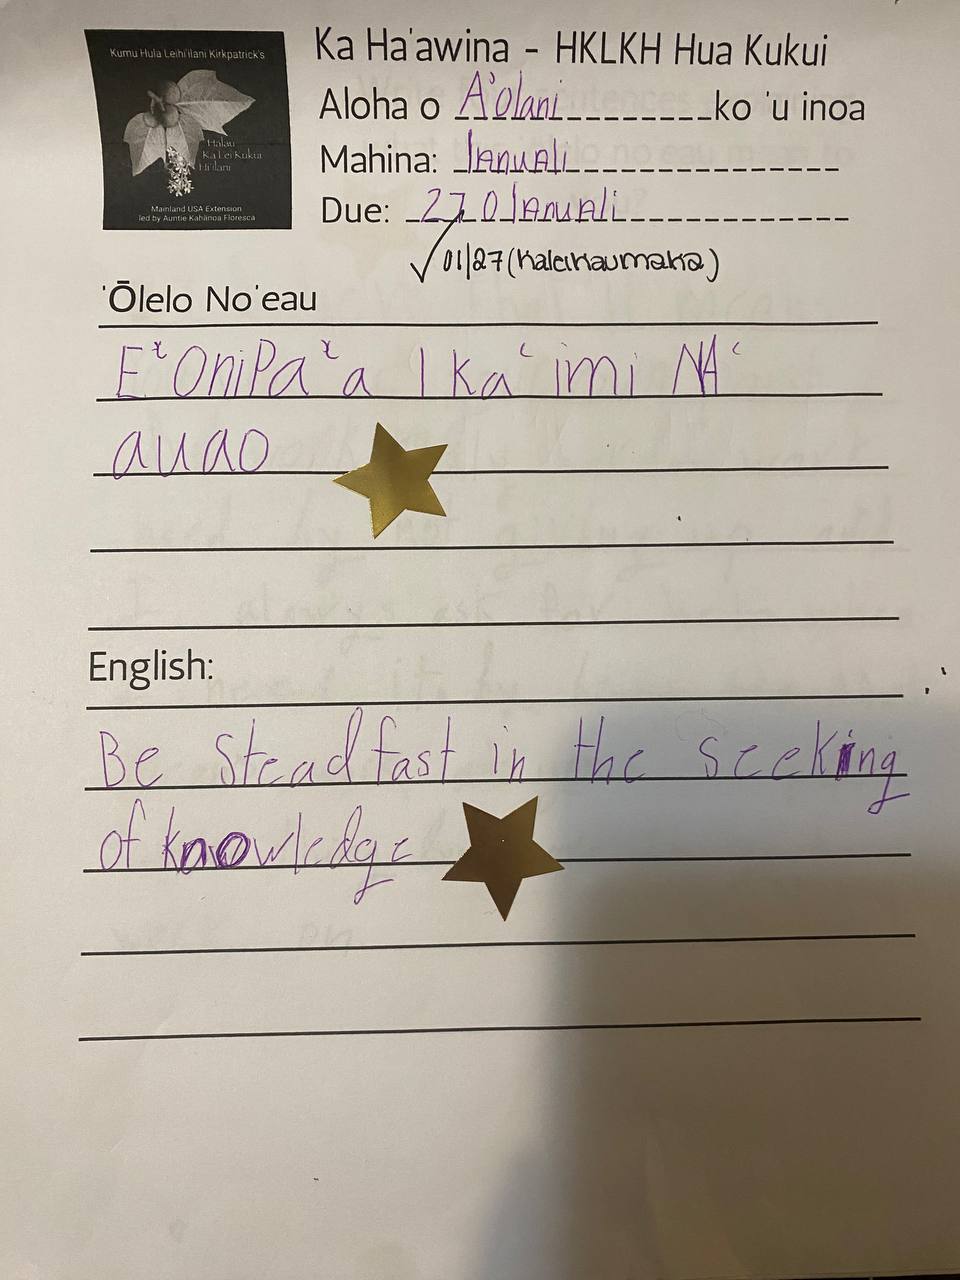 Kumu Hula Leihi'ilani Kirkpatrick's
Halau
Ka Lei Kukui
Hi'ilani
Mainland USA Extension
led by Auntie Kahanoa Floresca
Ka Ha'awina - HKLKH Hua Kukui
Aloha o A'olani ko 'u inoa
Mahina: Ianuali
Due: 27 O Ianuali
✓ 01/27 (Kaleikaumaka)
'Ōlelo No'eau
E ʻOniPaʻa I Ka ʻimi NAʻ
auao
English:
Be Steadfast in the seeking
of knowledge